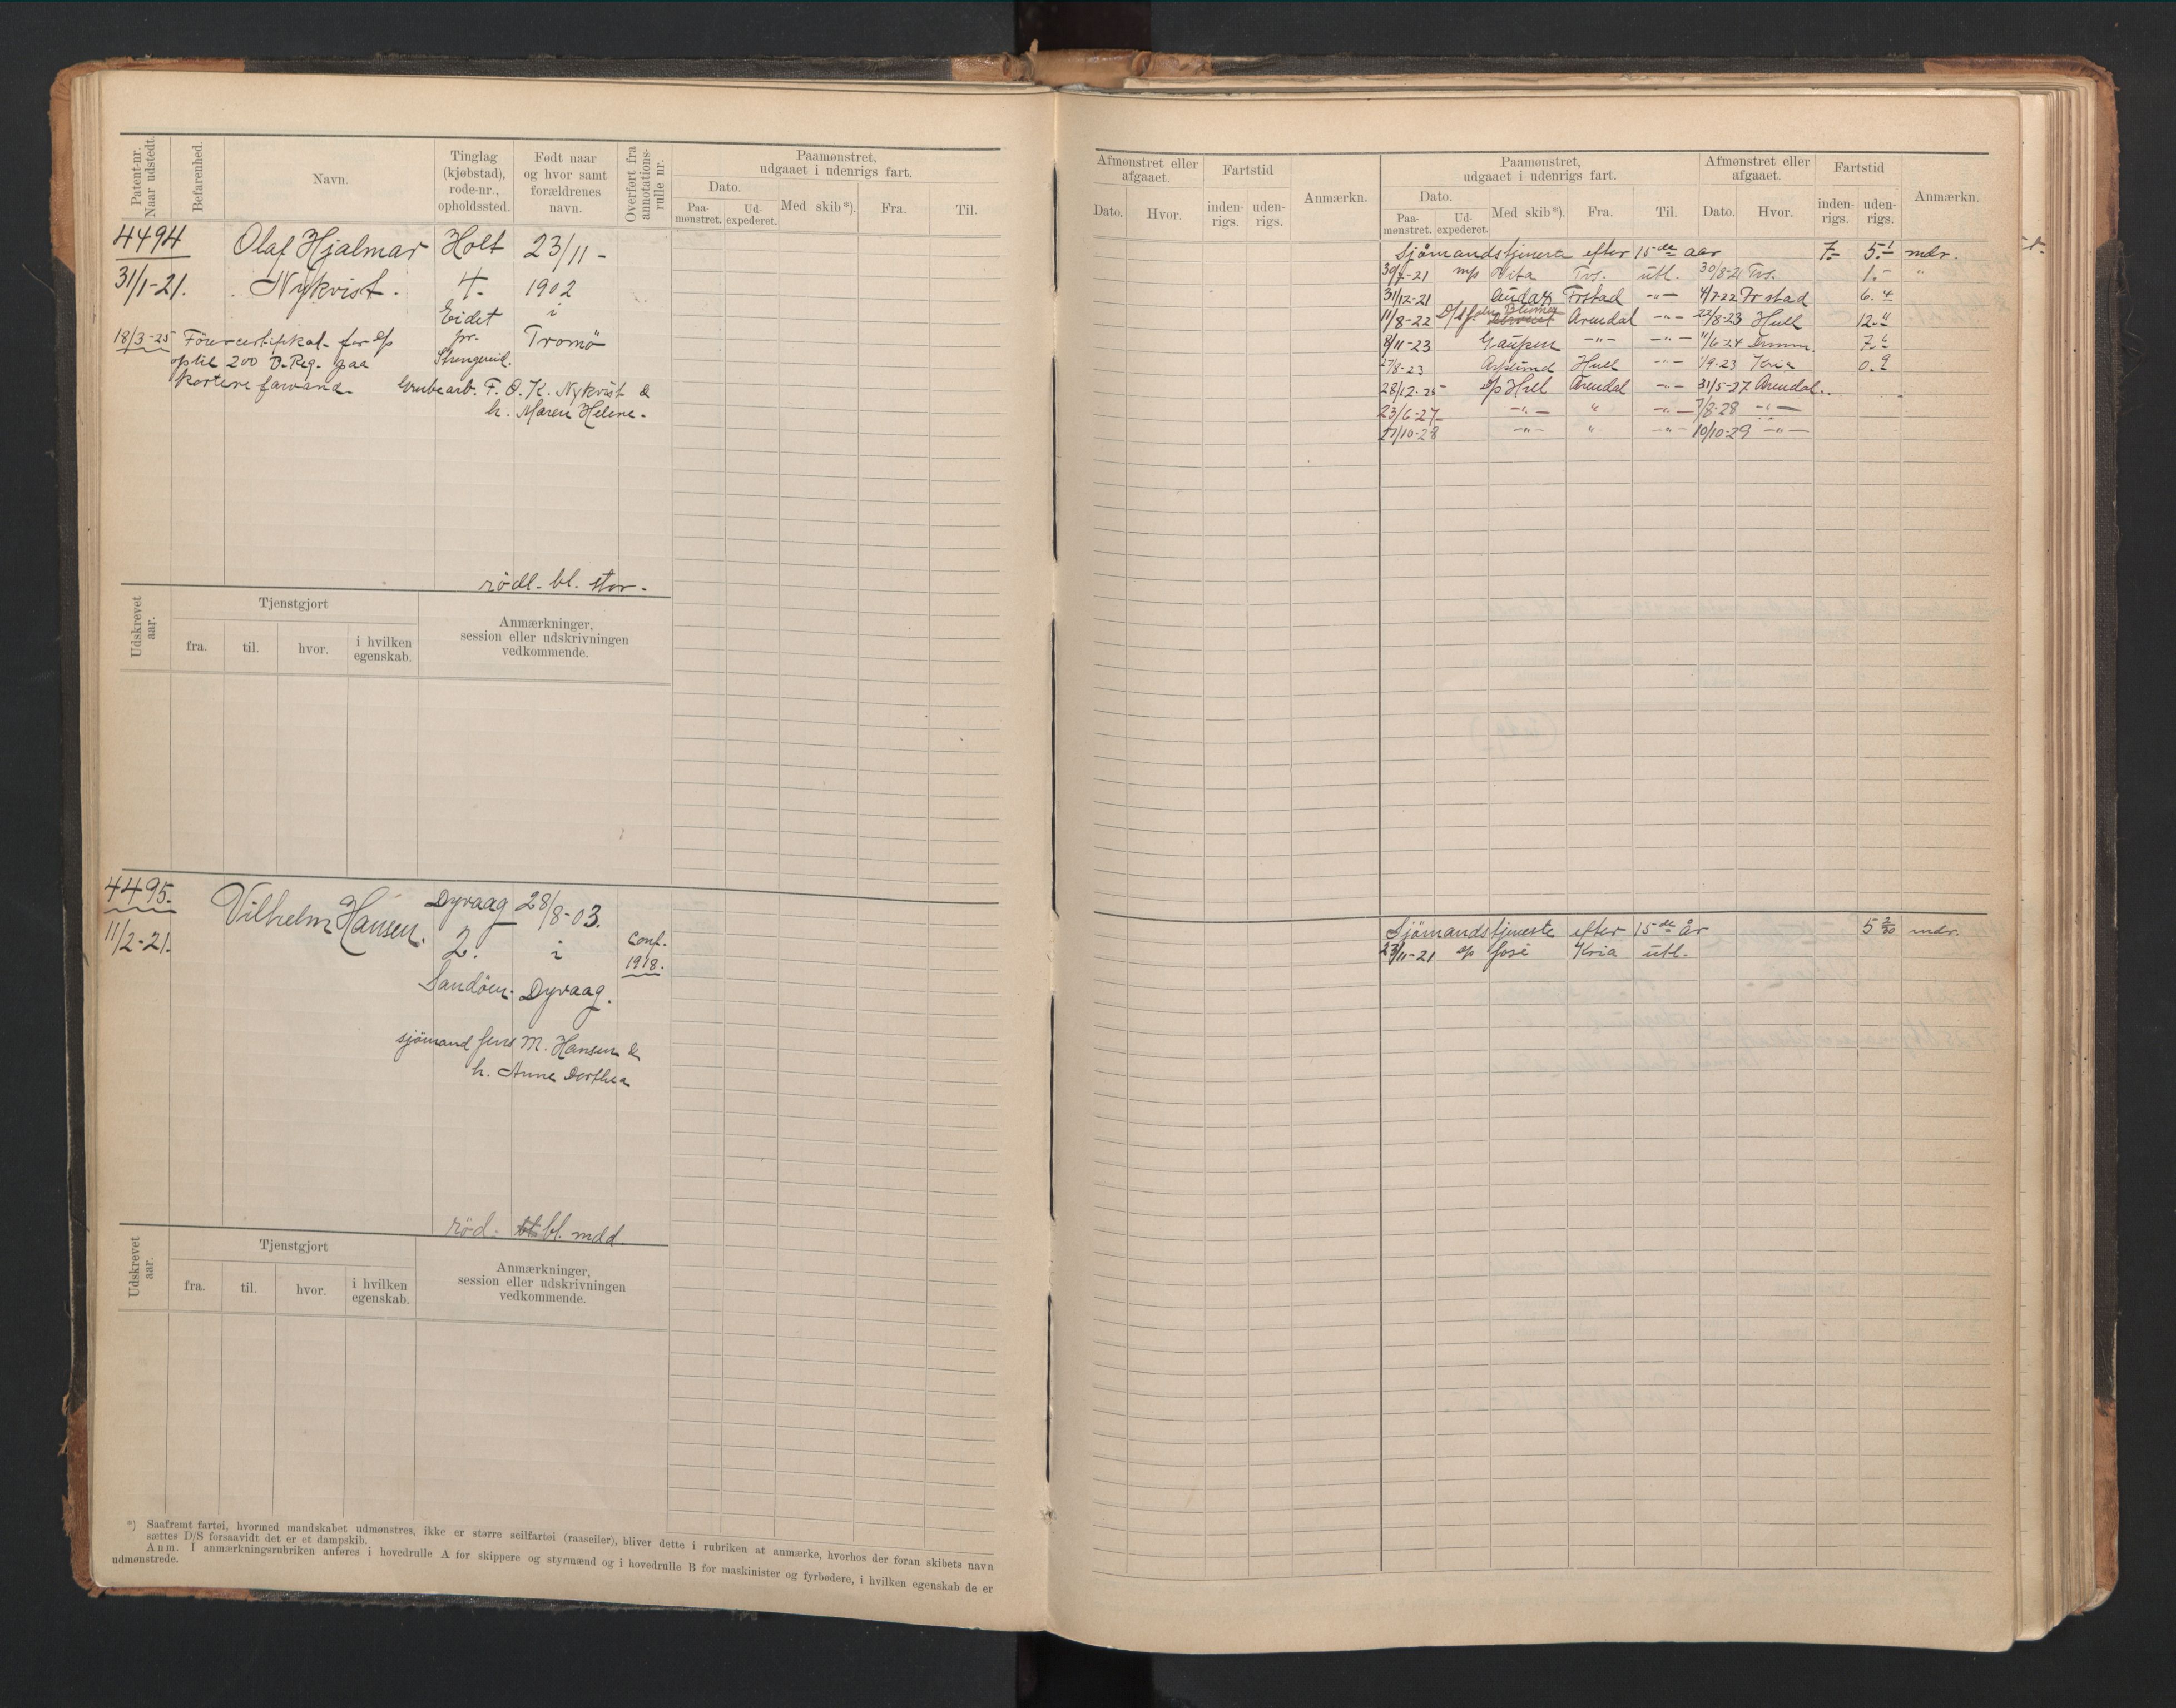 Patent-nr.
Naar udstedt.
Befarenhed.
Navn.
Tinglag
(kjøbstad),
rode-nr.,
opholdssted.
Født naar
og hvor samt
forældrenes
navn.
Overført fra
annotations-
rulle nr.
Paamønstret,
udgaaet i udenrigs fart.
Dato.
Paa-
mønstret.
Ud-
expederet.
Med skib*).
Fra.
Til.
4494
31/1-21.
Olaf Hjalmar
Nykvist.
Holt
4.
Eidet
pr.
23/11 -
1902
i
Tromö
18/3-25 Förercertifikat for
optil 200 B. Reg. paa
kortere farvand.
Grubearb. F. O. K. Nykvist &
h. Maren Helene.
rödl. bl. stor.
Udskrevet
aar.
Tjenstgjort
fra.
til.
hvor.
i hvilken
egenskab.
Anmærkninger,
session eller udskrivningen
vedkommende.
4495.
11/2-21.
Vilhelm Hansen.
Dyvaag
2.
Sandöen.
28/8-03.
i
Dyvaag.
Conf.
1918.
sjömand Jens M. Hansen &
h. Anne Dorthea
röd. bl. mdd.
Udskrevet
aar.
Tjenstgjort
fra.
til.
hvor.
i hvilken
egenskab.
Anmærkninger,
session eller udskrivningen
vedkommende.
*) Saafremt fartøi, hvormed mandskabet udmønstres, ikke er større seilfartøi (raaseiler), bliver dette i rubriken at anmærke, hvorhos der foran skibets navn
sættes D/S forsaavidt det er et dampskib.
Anm. I anmærkningsrubriken anføres i hovedrulle A for skippere og styrmænd og i hovedrulle B for maskinister og fyrbødere, i hvilken egenskab de er
udmønstrede.
Afmønstret eller
afgaaet.
Dato.
Hvor.
Fartstid
inden-
rigs.
uden-
rigs.
Anmærkn.
Paamønstret,
udgaaet i udenrigs fart.
Dato.
Paa-
mønstret.
Ud-
expederet.
Med skib*).
Fra.
Til.
Afmønstret eller
afgaaet.
Dato.
Hvor.
Fartstid
inden-
rigs.
uden-
rigs.
Anmærkn.
Sjömandstjeneste efter 15 de aar 7.- 5.1 mdr.
30/7-21 Vita Tvs. utl. 30/8-21 Tvs. 1.- "
31/12-21 Frstad -"- 4/7-22 Frstad 6.4
11/8-22 Arendal -"- 22/8-23 Hull 12.11
8/11-23 Gaupen -"- -"- 11/6-24 7.6
27/8-23 Asplund Hull -"- 1/9-23 Kria 0.9
28/12-25 Hill Arendal -"- 31/5-27 Arendal.
23/6-27 -"- " -"- 7/8-28 -"-
27/10-28 -"- " -"- 10/10-29 -"-
Sjömandstjeneste efter 15 de år 5 mdr.
23/11-21 José Kria utl.